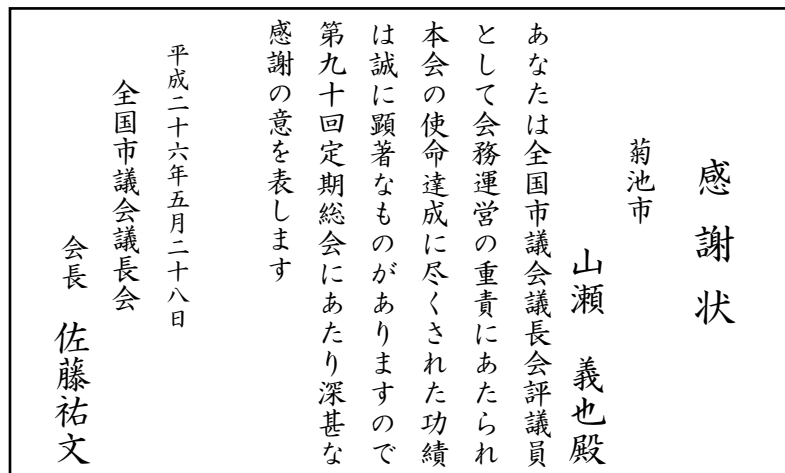 感謝状
菊池市
山瀬 義也殿
あなたは全国市議会議長会評議員
として会務運営の重責にあたられ
本会の使命達成に尽くされた功績
は誠に顕著なものがありますので
第九十回定期総会にあたり深甚な
感謝の意を表します
平成二十六年五月二十八日
全国市議会議長会
会長 佐藤祐文